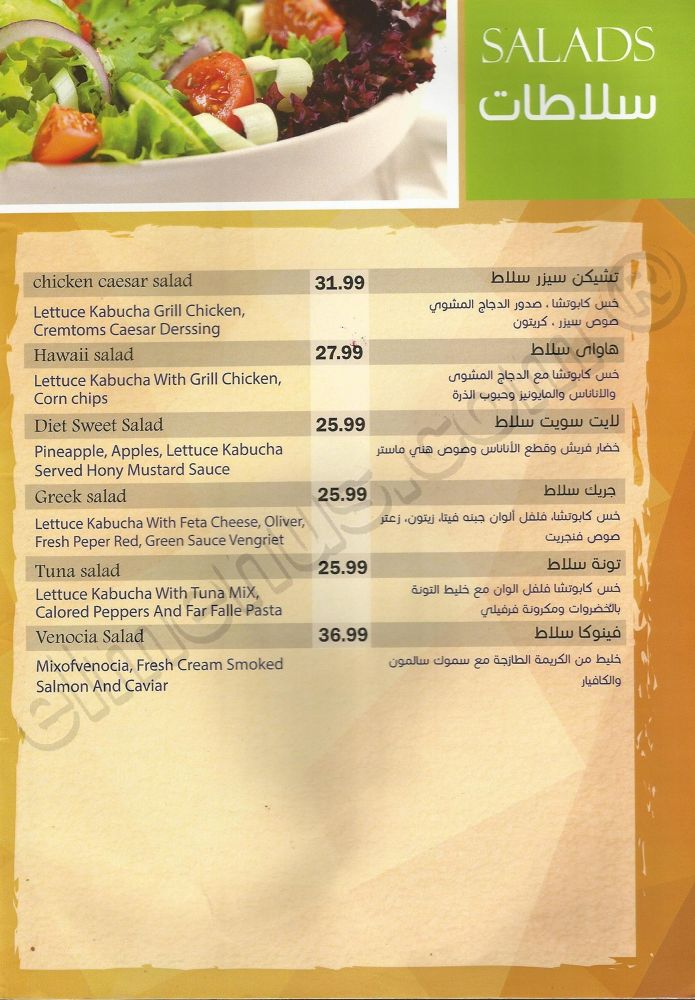 SALADS
سلاطات
chicken caesar salad 31.99 تشيكن سيزر سلاط
Lettuce Kabucha Grill Chicken,
Cremtoms Caesar Derssing
خس كابوتشا ، صدور الدجاج المشوي
صوص سيزر ، كريتون
Hawaii salad 27.99 هاواى سلاط
Lettuce Kabucha With Grill Chicken,
Corn chips
خس كابوتشا مع الدجاج المشوى
والاناناس والمايونيز وحبوب الذرة
Diet Sweet Salad 25.99 لايت سويت سلاط
Pineapple, Apples, Lettuce Kabucha
Served Hony Mustard Sauce
خضار فريش وقطع الأناناس وصوص هني ماستر
Greek salad 25.99 جريك سلاط
Lettuce Kabucha With Feta Cheese, Oliver,
Fresh Peper Red, Green Sauce Vengriet
خس كابوتشا، فلفل ألوان جبنه فيتا، زيتون، زعتر
صوص فنجريت
Tuna salad 25.99 تونة سلاط
Lettuce Kabucha With Tuna MiX,
Calored Peppers And Far Falle Pasta
خس كابوتشا فلفل الوان مع خليط التونة
بالخضروات ومكرونة فرفيلي
Venocia Salad 36.99 فينوكا سلاط
Mixofvenocia, Fresh Cream Smoked
Salmon And Caviar
خليط من الكريمة الطازجة مع سموك سالمون
والكافيار
elmenus.com ®